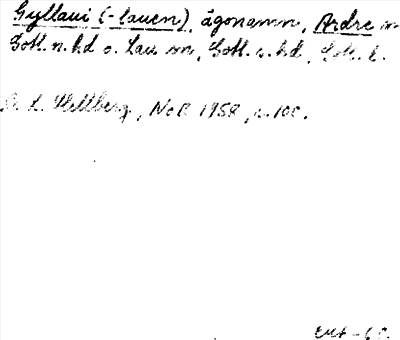 Gyllaui (-lauen), ägonamn, Ardre sn
Gotl. n. hd o. Lau sn, Gotl. s. hd, Gotl. l.
L. Hellberg, NoB 1958, s. 100.